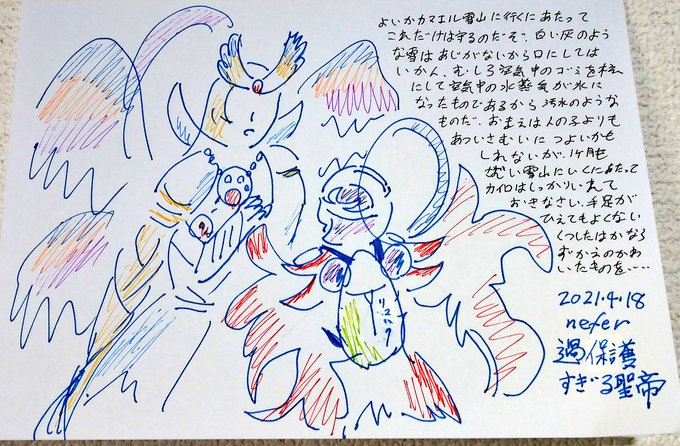 よいかカマエル雪山に行くにあたって
これだけは守るのだぞ、白い灰のよう
な雪はあじがないから口にしては
いかん、むしろ空気中のゴミを核
にして空気中の水蒸気が氷に
なったものであるから汚水のような
ものだ、おまえは人の子よりも
あついさむいに つよいかも
しれないが、1ヶ月も
雪山にいくにあたって
カイロはしっかりいれて
おきなさい、手足が
ひえてもよくない
くつしたはかなら
ずかえのかわ
いたものを、…
2021.4.18
nefer
過保護
すぎる聖帝
リスパック